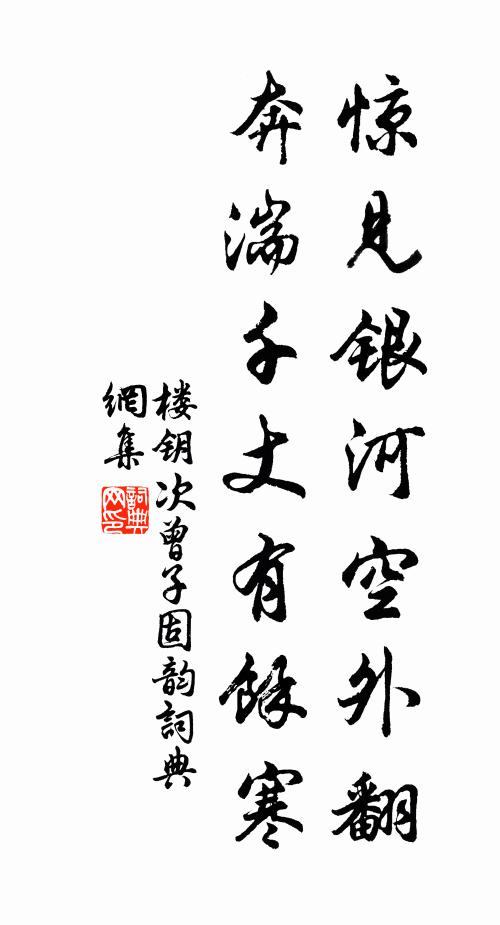 惊见银河空外翻
奔湍千丈有餘寒
楼钥次曾子固韵詞典
網集
詞典
网印